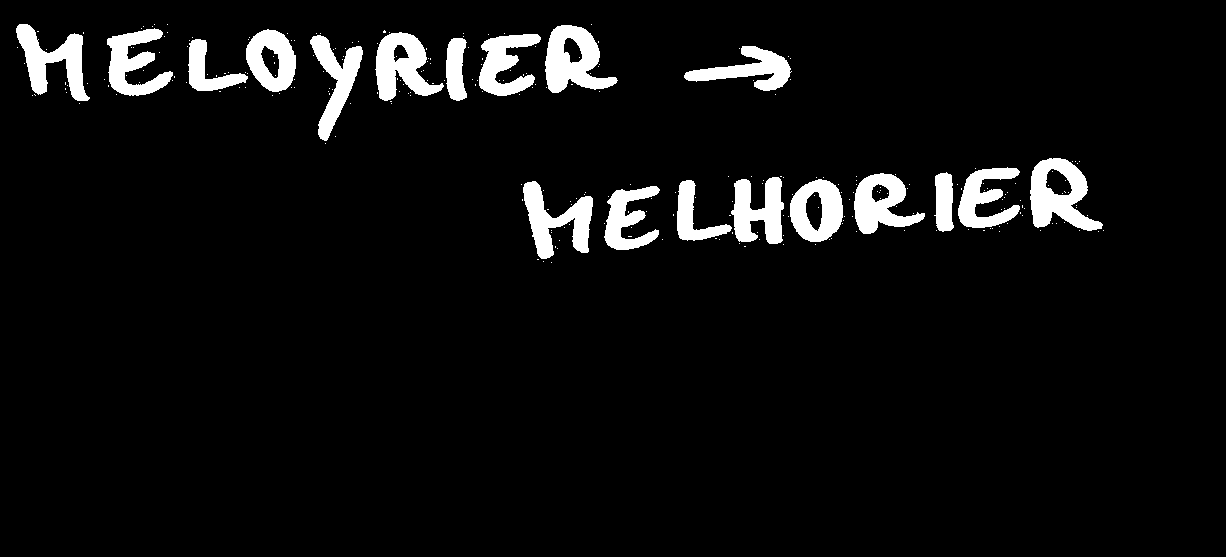 MELOYRIER →
MELHORIER